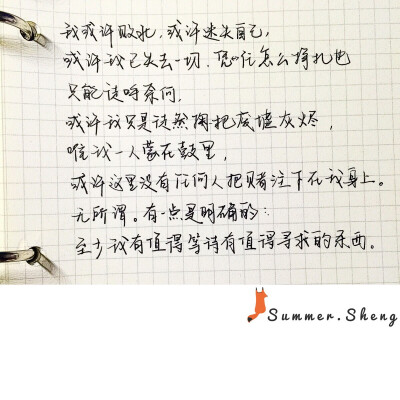 我或许败北，或许迷失自己，
或许我已失去一切、凭任怎么挣扎也
只能徒呼奈何，
或许我只是徒然掬把废墟灰烬，
唯我一人蒙在鼓里，
或许这里没有任何人把赌注下在我身上。
无所谓。有一点是明确的：
至少我有值得等待有值得寻求的东西。
Summer.Sheng